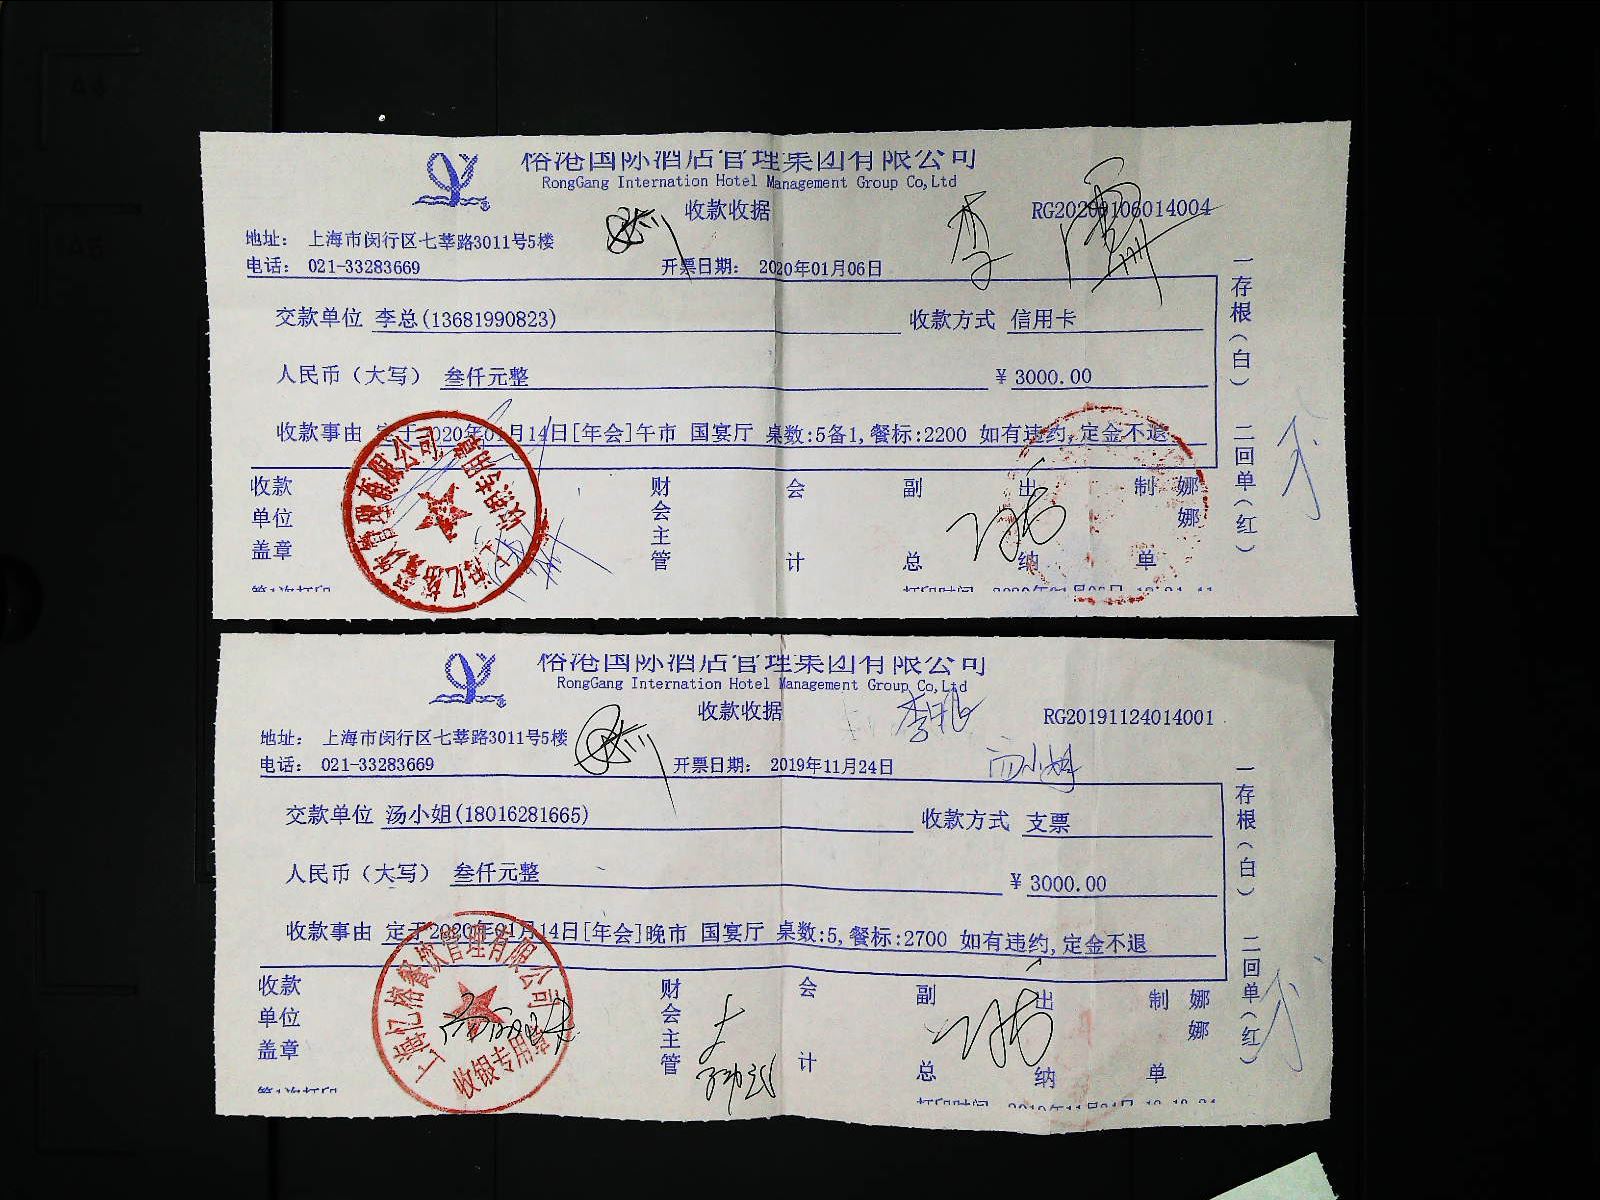 榕港国际酒店管理集团有限公司
RongGang Internation Hotel Management Group Co,Ltd
收款收据
RG20200106014004
地址： 上海市闵行区七莘路3011号5楼
电话： 021-33283669
开票日期： 2020年01月06日
交款单位 李总(13681990823)
收款方式 信用卡
人民币（大写） 叁仟元整
￥ 3000.00
收款事由 定于2020年01月14日[年会]午市 国宴厅 桌数:5备1,餐标:2200 如有违约,定金不退
收款单位盖章
财会主管
会计
副总
出纳
制单
娜娜
一存根（白） 二回单（红）
第1次打印
榕港国际酒店管理集团有限公司
RongGang Internation Hotel Management Group Co,Ltd
收款收据
RG20191124014001
地址： 上海市闵行区七莘路3011号5楼
电话： 021-33283669
开票日期： 2019年11月24日
交款单位 汤小姐(18016281665)
收款方式 支票
人民币（大写） 叁仟元整
￥ 3000.00
收款事由 定于2020年01月14日[年会]晚市 国宴厅 桌数:5,餐标:2700 如有违约,定金不退
上海亿榕餐饮管理有限公司
收银专用章
收款单位盖章
财会主管
会计
副总
出纳
制单
娜娜
一存根（白） 二回单（红）
第1次打印